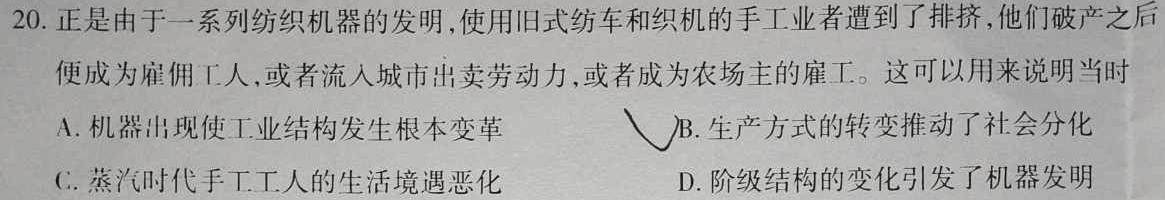 20. 正是由于一系列纺织机器的发明,使用旧式纺车和织机的手工业者遭到了排挤,他们破产之后
便成为雇佣工人,或者流入城市出卖劳动力,或者成为农场主的雇工。这可以用来说明当时
A. 机器出现使工业结构发生根本变革 B. 生产方式的转变推动了社会分化
C. 蒸汽时代手工工人的生活境遇恶化 D. 阶级结构的变化引发了机器发明